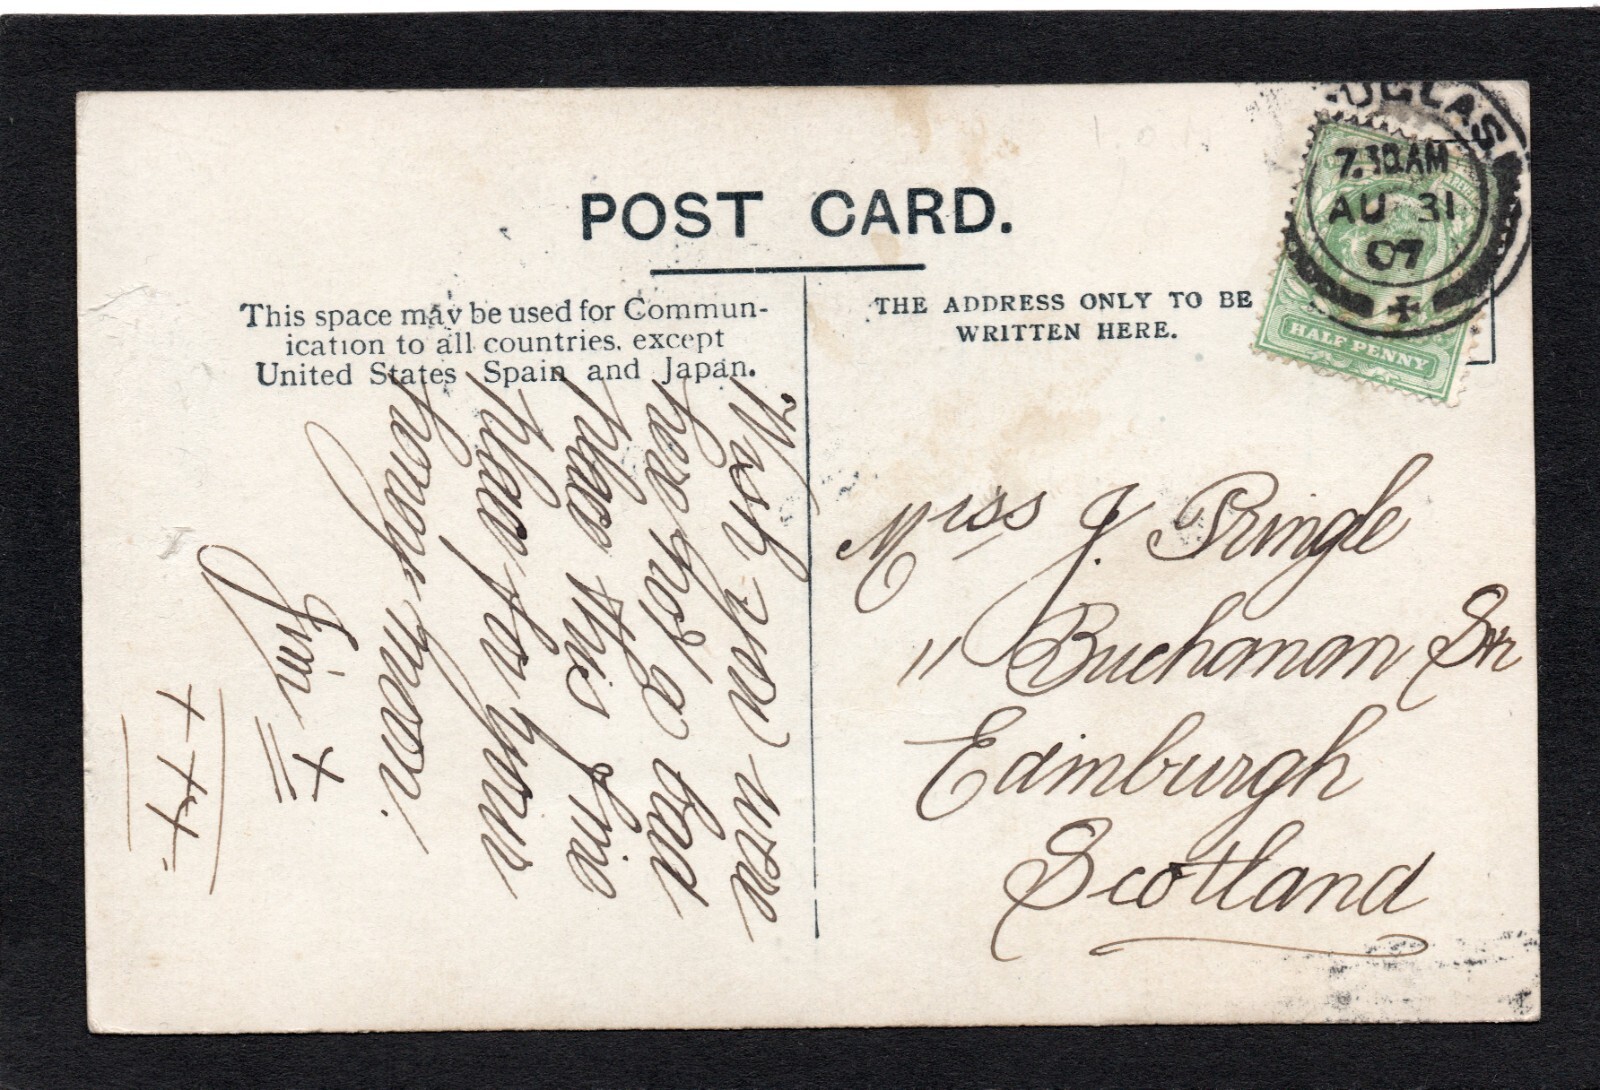 POST CARD.
This space may be used for Commun-
ication to all countries, except
United States Spain and Japan.
THE ADDRESS ONLY TO BE
WRITTEN HERE.
UGLAS
7.30.AM
AU 31
07
HALF PENNY
Wish you were
here not a bad
place this fine
place for your
honey moon.
Jim
x
+ + +
Miss J. Pringle
11 Buchanan Str
Edinburgh
Scotland